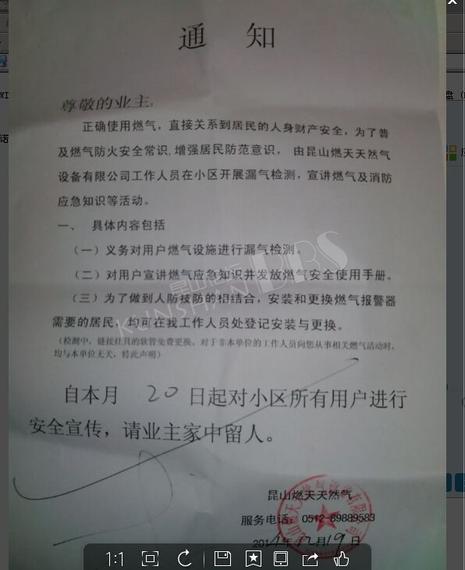 通 知
尊敬的业主:
正确使用燃气，直接关系到居民的人身财产安全，为了普
及燃气防火安全常识,增强居民防范意识， 由昆山燃天天然气
设备有限公司工作人员在小区开展漏气检测，宣讲燃气及消防
应急知识等活动。
一、 具体内容包括
（一）义务对用户燃气设施进行漏气检测。
（二）对用户宣讲燃气应急知识并发放燃气安全使用手册。
（三）为了做到人防技防的相结合，安装和更换燃气报警器
需要的居民，均可在我工作人员处登记安装与更换。
（检测中，链接灶具的软管免费更换。对于非本单位的工作人员向您从事相关燃气活动时，
均与本单位无关，特此声明）
自本月 20 日起对小区所有用户进行
安全宣传，请业主家中留人。
昆山燃天天然气
服务电话：0512-69889583
2014年12月19日
KUNSHAN BBS
1:1